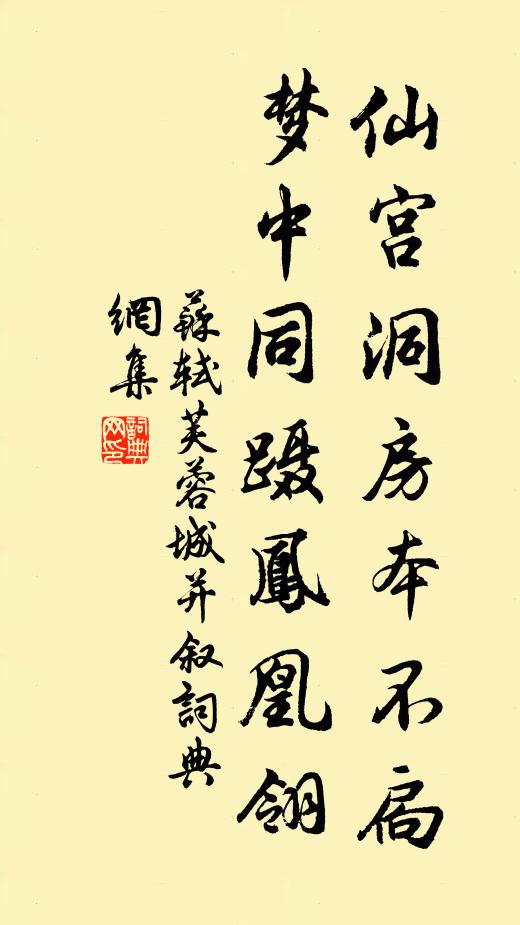 仙宫洞房本不扃
梦中同蹑鳳凰翎
蘇軾芙蓉城并叙詞典
網集
詞典
网印